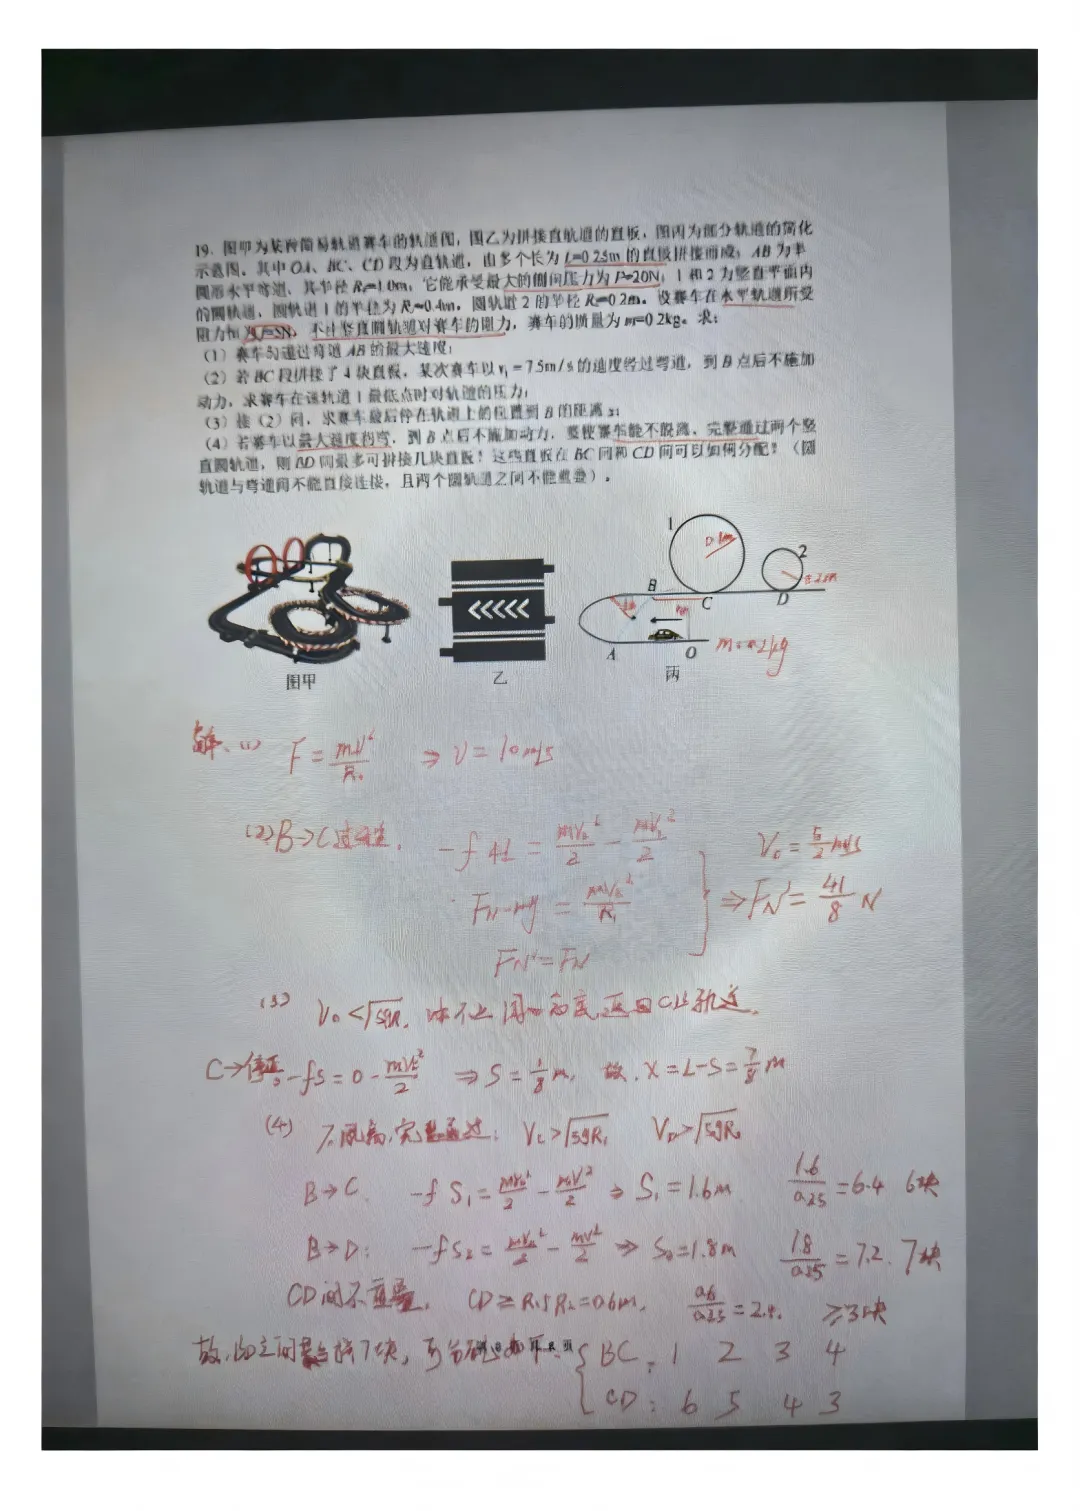 19. 图甲为某种简易轨道赛车的轨道图，图乙为拼接直轨道的直板，图丙为部分轨道的简化
示意图。其中OA、BC、CD段为直轨道，由多个长为L=0.25m的直板拼接而成；AB为半
圆形水平弯道，其半径R₀=1.0m，它能承受最大的侧向压力为F=20N；1和2为竖直平面内
的圆轨道，圆轨道1的半径为R₁=0.4m，圆轨道2的半径R₂=0.2m。设赛车在水平轨道所受
阻力恒为f=5N，不计竖直圆轨道对赛车的阻力，赛车的质量为m=0.2kg。求：
（1）赛车匀速过弯道AB的最大速度；
（2）若BC段拼接了4块直板，某次赛车以v₁=7.5m/s的速度经过弯道，到B点后不施加
动力，求赛车在该轨道1最低点时对轨道的压力；
（3）接（2）问，求赛车最后停在轨道上的位置到B的距离x；
（4）若赛车以最大速度的弯，到B点后不施加动力，要使赛车能不脱离、完整通过两个竖
直圆轨道，则BD间最多可拼接几块直板？这些直板在BC间和CD间可以如何分配？（圆
轨道与弯道间不能直接连接，且两个圆轨道之间不能重叠）。
1
2
B
C
D
A
O
m=0.2kg
图甲
乙
丙
解、(1) F=mv²/R₀ ⇒ v=10m/s
(2) B→C过程, -f4L=mv₀²/2-mv₁²/2
v₀=5/2 m/s
F_N-mg=mv₀²/R₁
⇒F_N'=41/8 N
F_N'=F_N
(3) v₀<√5gR, 冲不上 同一高度返回C点轨道.
C→停止, -fs=0-mv₀²/2 ⇒S=1/8 m, 故, X=L-S=7/8 m
(4) 不脱离, 完整通过: V_C>√5gR₁ V_D>√5gR₂
B→C. -fS₁=mv₀²/2-mv²/2 ⇒ S₁=1.6m 1.6/0.25=6.4 6块
B→D: -fS₂=mv₀²/2-mv²/2 ⇒ S₂=1.8m 1.8/0.25=7.2. 7块
CD间不重叠, CD≥R₁+R₂=0.6m, 0.6/0.25=2.4. ≥3块
故, BD之间最多拼7块, 可分配 BC: 1 2 3 4
CD: 6 5 4 3